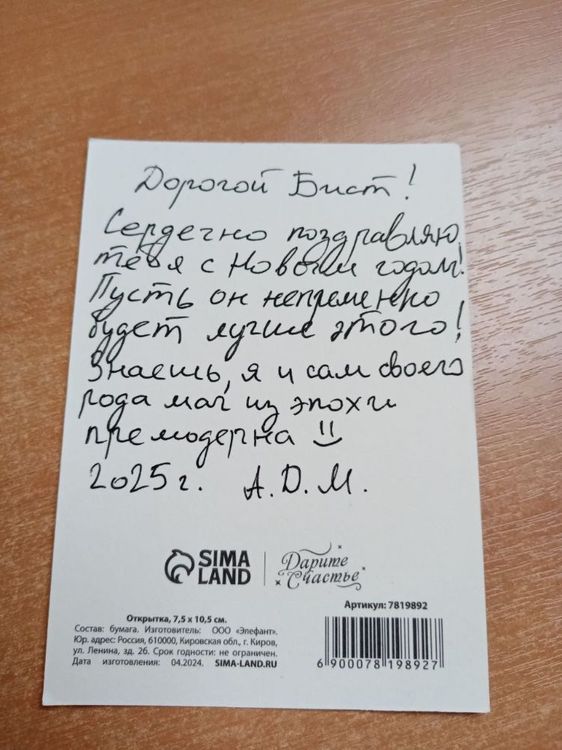 Дорогой Бист!
Сердечно поздравляю
тебя с Новым годом!
Пусть он непременно
будет лучше этого!
Знаешь, я и сам своего
рода маг из эпохи
премодерна
2025 г. А. D. М.
SIMA
LAND
Дарите
Счастье
Артикул: 7819892
Открытка, 7,5 х 10,5 см.
Состав: бумага. Изготовитель: ООО «Элефант».
Юр. адрес: Россия, 610000, Кировская обл., г. Киров,
ул. Ленина, зд. 2б. Срок годности: не ограничен.
Дата изготовления: 04.2024. SIMA-LAND.RU
6 900078 198927